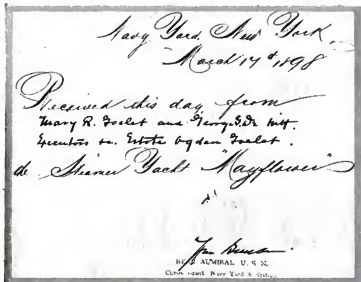 Navy Yard, New York,
March 17th 1898
Received this day from
Mary R. Goelet and George G. De Witt.
Executors &c. Estate Ogden Goelet.
de Steamer Yacht "Mayflower"
REAR ADMIRAL U. S. N.
Commandant Navy Yard & Station.